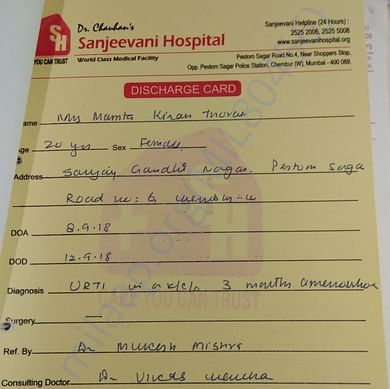 Dr. Chauhan's
Sanjeevani Hospital
World Class Medical Facility
SH
YOU CAN TRUST
Sanjeevani Helpline (24 Hours) :
2525 2006, 2525 5008
www.sanjeevanihospital.org
Pestom Sagar Road No.4, Near Shoppers Stop,
Opp. Pestom Sagar Police Station, Chembur (W), Mumbai - 400 089.
DISCHARGE CARD
ame Mrs Mamta Kiran
ge 20 yrs Sex Female
Address Sanjay Gandhi Nagar, Pestom Sagar
Road no: 6,
DOA 8.9.18
DOD 12.9.18
Diagnosis URTI in a k/c/o 3 months
CARE YOU CAN TRUST
Surgery —
Ref. By Dr Mukesh Mishra
Consulting Doctor Dr Vikas